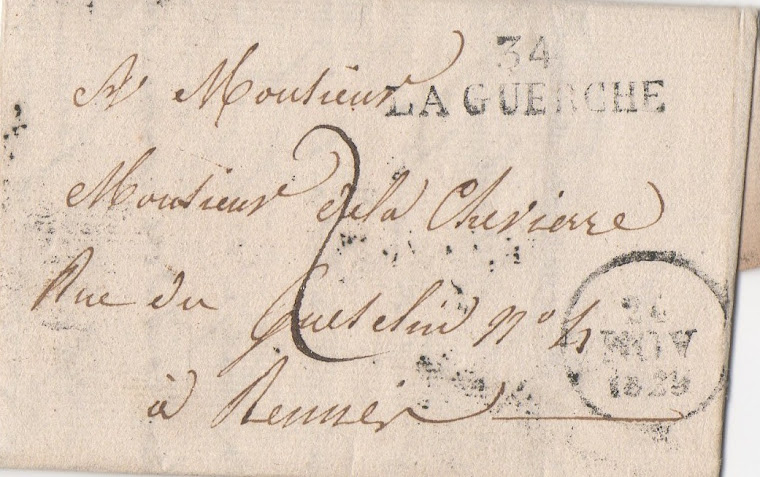 34
LA GUERCHE
A Monsieur
Monsieur de la Chevierre
Rue du Guesclin n° 4
à Rennes
2
24
NOV
1829